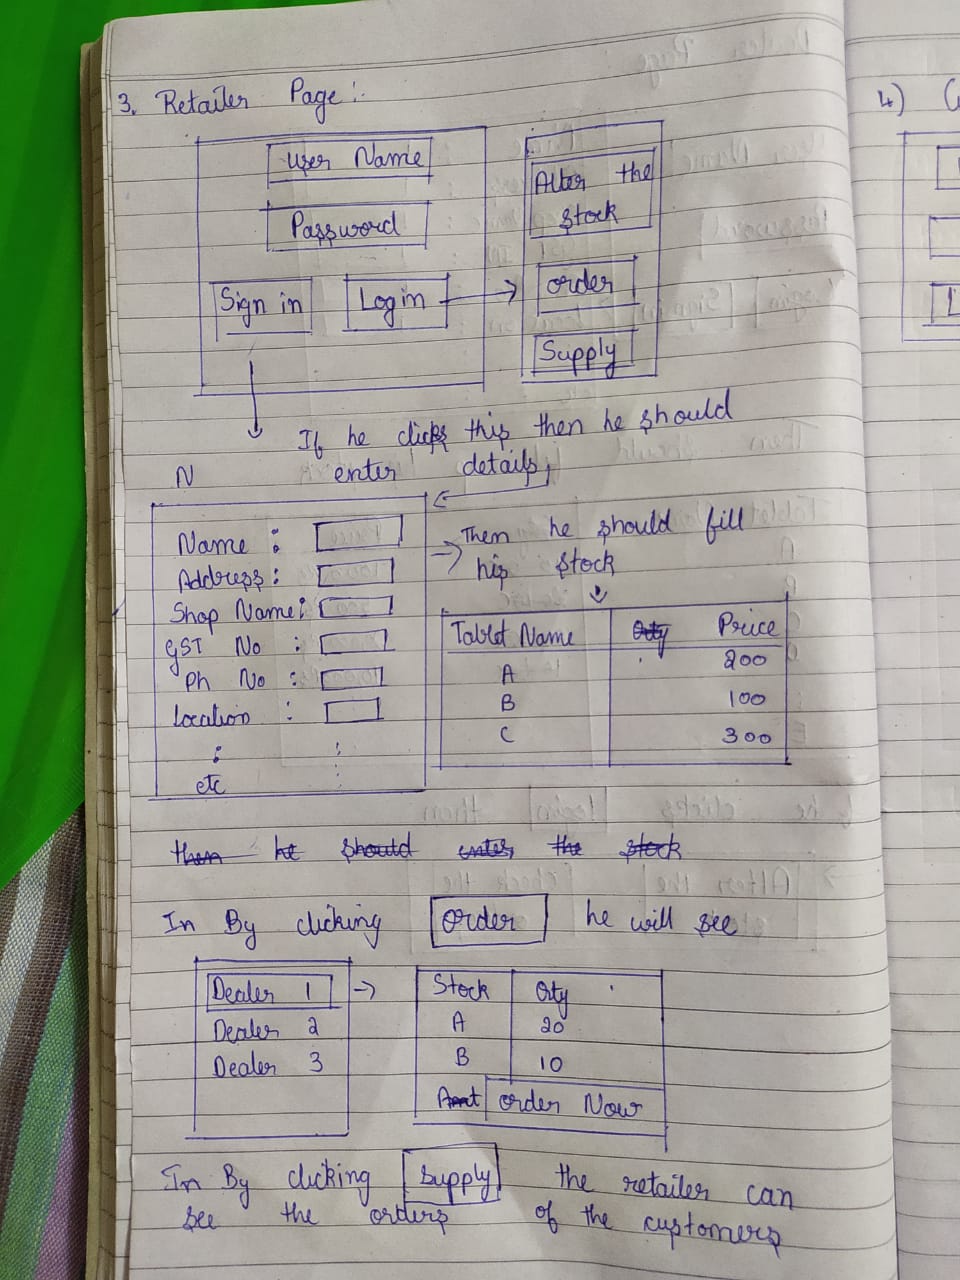 3. Retailer Page:-
User Name
Password
Sign in
Login
Alter the
stock
order
Supply
If he clicks this then he should
enter details,
N
Name :
Address :
Shop Name :
GST No :
Ph No :
Location :
:
:
etc
Then he should fill
his stock
Tablet Name Qty Price
A 200
B 100
C 300
then he should enter the stock
In By clicking order he will see
Dealer 1
Dealer 2
Dealer 3
Stock Qty
A 20
B 10
Amt order Now
In By clicking Supply the retailer can
see the orders of the customers
4)
L